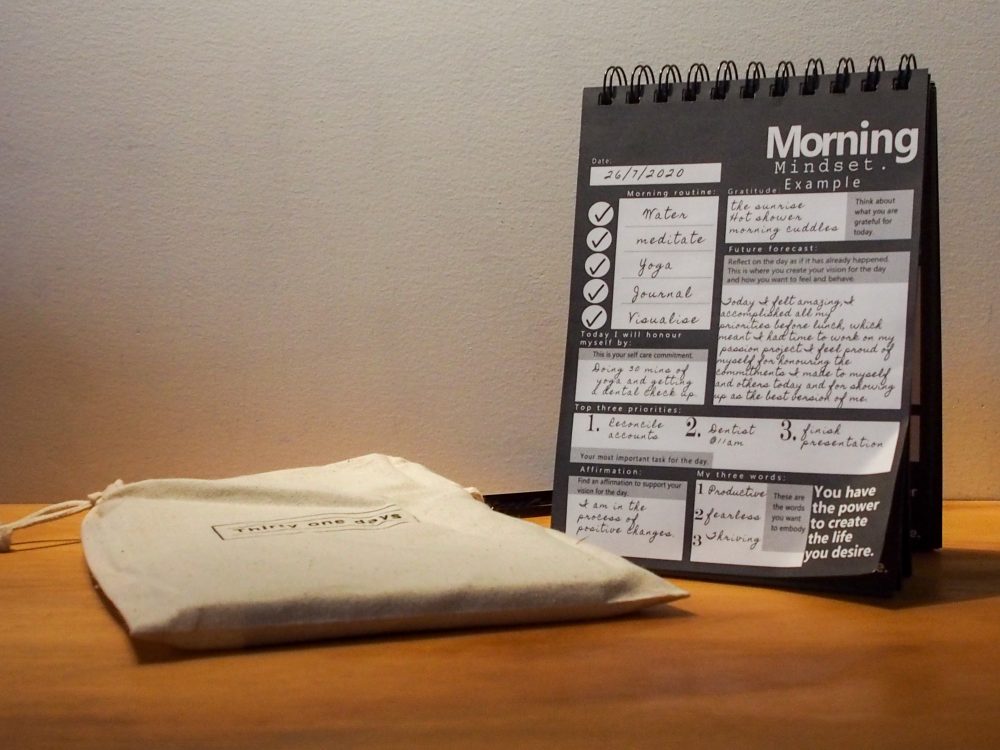 Morning
Mindset.
Example
Date:
26/7/2020
Morning routine:
Water
meditate
Yoga
Journal
Visualise
Gratitude:
the sunrise
Hot shower
morning cuddles
Think about
what you are
grateful for
today.
Future forecast:
Reflect on the day as if it has already happened.
This is where you create your vision for the day
and how you want to feel and behave.
Today I felt amazing, I
accomplished all my
priorities before lunch, which
meant I had time to work on my
passion project I feel proud of
myself for honouring the
commitments I made to myself
and others today and for showing
up as the best version of me.
Today I will honour
myself by:
This is your self care commitment.
Doing 30 mins of
yoga and getting
a dental check up.
Top three priorities:
1. Reconcile
accounts
2. Dentist
@11am
3. finish
presentation
Your most important task for the day.
Affirmation:
Find an affirmation to support your
vision for the day.
I am in the
process of
positive changes.
My three words:
1 Productive
2 fearless
3 Thriving
These are
the words
you want
to embody
You have
the power
to create
the life
you desire.
Thirty one days